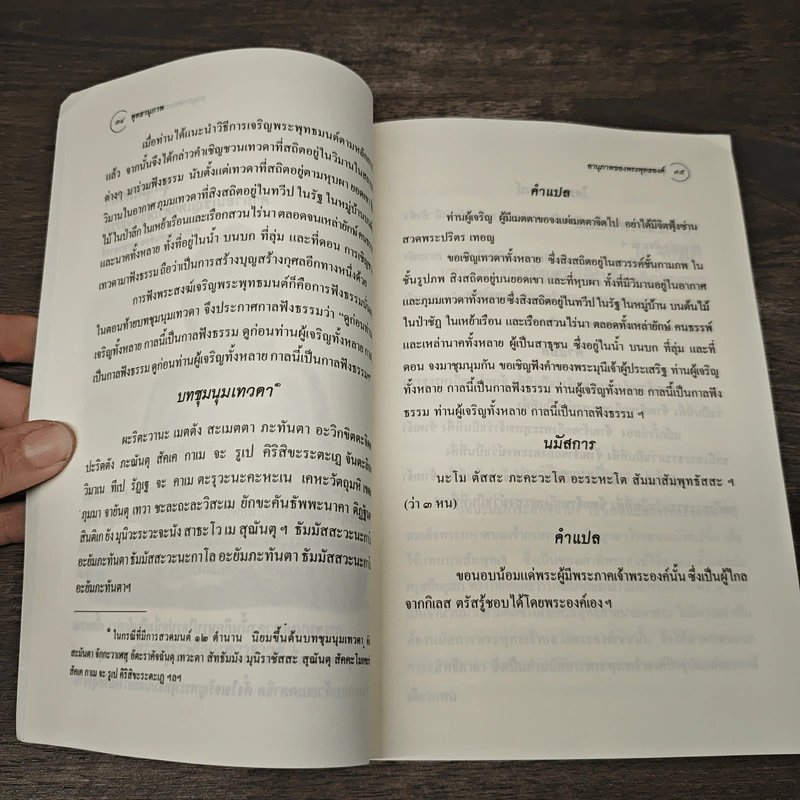 ๓๔ พุทธานุภาพ
เมื่อท่านได้แนะนำวิธีการเจริญพระพุทธมนต์ตามหลัก
แล้ว จากนั้นจึงได้กล่าวคำเชิญชวนเทวดาที่สถิตอยู่ในวิมานใน
ต่างๆ มาร่วมฟังธรรม นับตั้งแต่เทวดาที่สถิตอยู่ตามหุบผา ยอดเขา
วิมานในอากาศ ภุมมเทวดาที่สิงสถิตอยู่ในทวีป ในรัฐ ในหมู่บ้าน บนต้น
ไม้ ในป่าลึก ในเหย้าเรือนและเรือกสวนไร่นา ตลอดจนเหล่ายักษ์ คน
และนาคทั้งหลาย ทั้งที่อยู่ในน้ำ บนบก ที่ลุ่ม และที่ดอน การเชิญ
เทวดามาฟังธรรม ถือว่าเป็นการสร้างบุญสร้างกุศลอีกทางหนึ่งด้วย
การฟังพระสงฆ์เจริญพระพุทธมนต์ก็คือการฟังธรรม
ในตอนท้ายบทชุมนุมเทวดา จึงประกาศกาลฟังธรรมว่า “ดูก่อนท่าน
เจริญทั้งหลาย กาลนี้เป็นกาลฟังธรรม ดูก่อนท่านผู้เจริญทั้งหลาย กาลนี้
เป็นกาลฟังธรรม ดูก่อนท่านผู้เจริญทั้งหลาย กาลนี้เป็นกาลฟังธรรมฯ
บทชุมนุมเทวดา
ผะริตะวานะ เมตตัง สะเมตตา ภะทันตา อะวิกขิตตะจิต
ปะริตตัง ภะณันตุ สัคเค กาเม จะ รูเป คิริสิขะระตะเฏ จันตะลิก
วิมาเน ทีเป รัฏเฐ จะ คาเม ตะรุวะนะคะหะเน เคหะวัตถุมหิ เขต
ภุมมา จายันตุ เทวา ชะละถะละวิสะเม ยักขะคันธัพพะนาคา ติฏฐัน
สันติเก ยัง มุนิวะระวะจะนัง สาธะโว เม สุณันตุ ฯ ธัมมัสสะวะนะกา
อะยัมภะทันตา ธัมมัสสะวะนะกาโล อะยัมภะทันตา ธัมมัสสวะนะกา
อะยัมภะทันตาฯ
ในกรณีที่มีการสวดมนต์ ๑๒ ตำนาน นิยมขึ้นต้นบทชุมนุมเทวดา
สะมันตา จักกะวาเฬสุ อัตะราคัจฉันตุ เทวะตา สัทธัมมัง มุนิราชัสสะ สุณันตุ สัคคะโมกขะ
สัคเค กาเม จะ รูเป คิริสิขะระตะเฏ ฯลฯ
อานุภาพของพระพุทธองค์ ๓๕
คำแปล
ท่านผู้เจริญ ผู้มีเมตตาขอจงแผ่เมตตาจิตไป อย่าได้มีจิตฟุ้งซ่าน
สวดพระปริตร เทอญ
ขอเชิญเทวดาทั้งหลาย ซึ่งสิงสถิตอยู่ในสวรรค์ชั้นกามภพ ใน
ชั้นรูปภพ สิงสถิตอยู่บนยอดเขา และที่หุบผา ทั้งที่มีวิมานอยู่ในอากาศ
และภุมมเทวดาทั้งหลาย ซึ่งสิงสถิตอยู่ในทวีป ในรัฐ ในหมู่บ้าน บนต้นไม้
ในป่าชัฏ ในเหย้าเรือน และเรือกสวนไร่นา ตลอดทั้งเหล่ายักษ์ คนธรรพ์
และเหล่านาคทั้งหลาย ผู้เป็นสาธุชน ซึ่งอยู่ในน้ำ บนบก ที่ลุ่ม และที่
ดอน จงมาชุมนุมกัน ขอเชิญฟังคำของพระมุนีเจ้าผู้ประเสริฐ ท่านผู้เจริญ
ทั้งหลาย กาลนี้เป็นกาลฟังธรรม ท่านผู้เจริญทั้งหลาย กาลนี้เป็นกาลฟัง
ธรรม ท่านผู้เจริญทั้งหลาย กาลนี้เป็นกาลฟังธรรม ฯ
นมัสการ
นะโม ตัสสะ ภะคะวะโต อะระหะโต สัมมาสัมพุทธัสสะ ฯ
(ว่า ๓ หน)
คำแปล
ขอนอบน้อมแด่พระผู้มีพระภาคเจ้าพระองค์นั้น ซึ่งเป็นผู้ไกล
จากกิเลส ตรัสรู้ชอบได้โดยพระองค์เอง ฯ